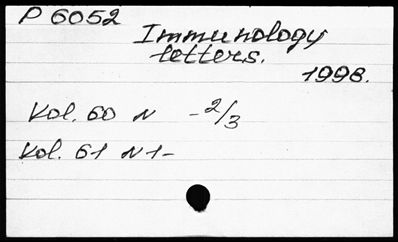 P 6052
Immunology
letters.
1998.
Vol. 60 N - 2/3
Vol. 61 N 1 -